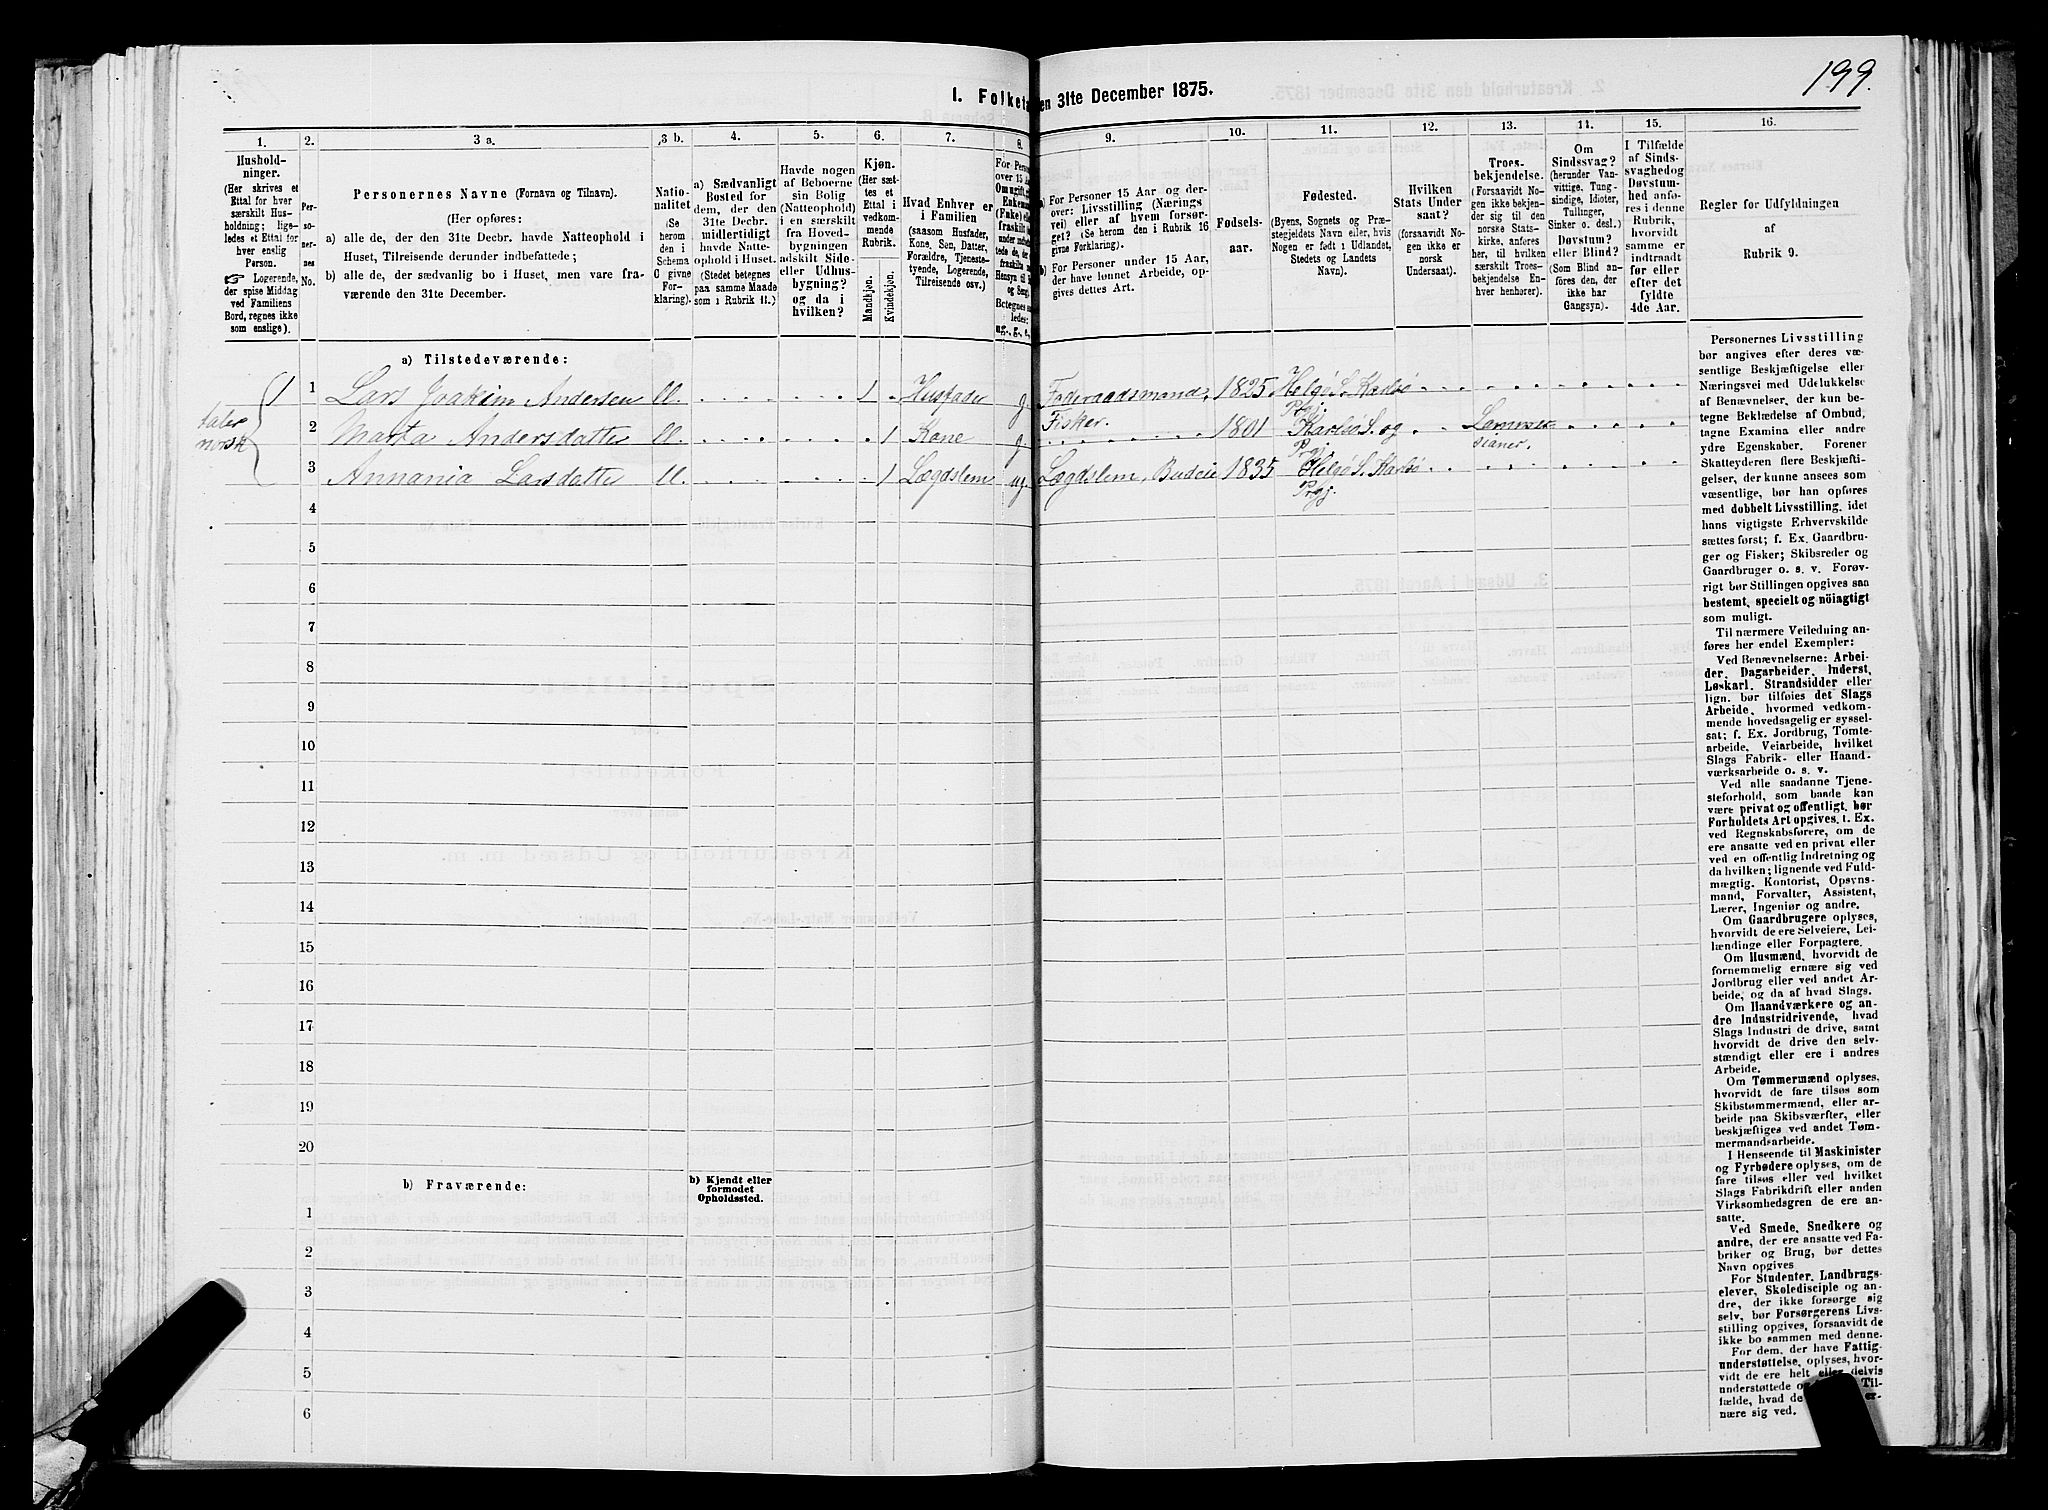 199.
I. Folketa
en 31te December 1875.
1.
2.
3 a.
3 b.
4.
5.
6.
7.
8.
9.
10.
11.
12.
13.
14.
15.
16.
Hushold-
ninger.
(Her skrives et
Ettal for hver
særskilt Hus-
holdning; lige-
ledes et Ettal for
hver enslig
Person.
☞ Logerende,
der spise Middag
ved Familiens
Bord, regnes ikke
som enslige).
Per-
so-
ner-
nes
No.
Personernes Navne (Fornavn og Tilnavn).
(Her opføres:
a) alle de, der den 31te Decbr. havde Natteophold i
Huset, Tilreisende derunder indbefattede;
b) alle de, der sædvanlig bo i Huset, men vare fra-
værende den 31te December.
Natio-
nalitet
(Se
herom
den i
Schema
C givne
For-
klaring).
a) Sædvanligt
Bosted for
dem, der den
31te Decbr.
midlertidigt
havde Natte-
ophold i Huset.
(Stedet betegnes
paa samme Maade
som i Rubrik 11.)
Havde nogen
af Beboerne
sin Bolig
(Natteophold)
i en særskilt
fra Hoved-
bygningen
adskilt Side-
eller Udhus-
bygning?
og da i
hvilken?
Kjøn.
(Her sæt-
tes et
Ettal i
vedkom-
mende
Rubrik.
Mandkjøn.
Kvindekjøn.
Hvad Enhver er
i Familien
(saasom Husfader,
Kone, Søn, Datter,
Forældre, Tjeneste-
tyende, Logerende,
Tilreisende osv.)
For Person
over 15 Aa
Omugift, g
Enkeman
(Enke) elle
fraskilt
under indbe
tede de, de
fraskilte
Hensyn til
og Seng.
Betegnes saa
ledes:
ug., g., e.,
a) For Personer 15 Aar og der-
over: Livsstilling (Nærings
vei) eller af hvem forsør-
get? (Se herom i Rubrik 16
givne Forklaring.)
b) For Personer under 15 Aar,
der have lønnet Arbeide, op-
gives dettes Art.
Fødsels-
aar.
Fødested.
(Byens, Sognets og Præ-
stegjeldets Navn eller, hvis
Nogen er født i Udlandet,
Stedets og Landets
Navn).
Hvilken
Stats Under
saat?
(forsaavidt No-
gen ikke er
norsk
Undersaat).
Troes-
bekjendelse.
(Forsaavidt No-
gen ikke bekjen-
der sig til den
norske Stats-
kirke, anføres
her, til hvilken
særskilt Troes-
bekjendelse En-
hver henhører).
Om
Sindssvag?
(herunder Van-
vittige, Tung-
sindige, Idioter,
Tullinger,
Sinker o. desl.)
Døvstum?
eller Blind?
(Som Blind an-
føres den, der
ikke har
Gangsyn).
I Tilfælde
af Sinds-
svaghed og
Døvstum-
hed anfø-
res i denne
Rubrik,
hvorvidt
samme er
indtraadt
før eller
efter det
fyldte
4de Aar.
Regler for Udfyldningen
af
Rubrik 9.
a) Tilstedeværende:
taler
norsk
1 1 Lars Joakim Andersen ll. 1 Husfader g. Føderaadsmand, 1825 Helgø S. Karlsø
Prgj.
Fisker.
2 Marta Andersdatter ll. 1 Kone g. 1801 Karlsø S. og
Prgj.
3 Annania Larsdatter ll. 1 Lægdslem ug. Lægdslem, Budeie 1835 Helgø S. Karlsø
Prgj.
4
5
6
7
8
9
10
11
12
13
14
15
16
17
18
19
20
b) Fraværende:
b) Kjendt eller
formodet
Opholdssted.
1
2
3
4
5
6
Personernes Livsstilling
bør angives efter deres væ-
sentlige Beskjæftigelse eller
Næringsvei med Udelukkelse
af Benævnelser, der kun be-
tegne Beklædelse af Ombud,
tagne Examina eller andre
ydre Egenskaber. Forener
Skatteyderen flere Beskjæfti-
gelser, der kunne ansees som
væsentlige, bør han opføres
med dobbelt Livsstilling, idet
hans vigtigste Erhvervskilde
sættes først; f. Ex. Gaardbru-
ger og Fisker; Skibsreder og
Gaardbruger o. s. v. Forøv-
rigt bør Stillingen opgives saa
bestemt, specielt og nöiagtigt
som muligt.
Til nærmere Veiledning an-
føres her endel Exempler:
Ved Benævnelserne: Arbei-
der, Dagarbeider, Inderst,
Løskarl, Strandsidder eller
lign. bør tilføies det Slags
Arbeide, hvormed vedkom-
mende hovedsagelig er syssel-
sat; f. Ex. Jordbrug, Tomte-
arbeide, Veiarbeide, hvilket
Slags Fabrik- eller Haand-
værksarbeide o. s. v.
Ved alle saadanne Tjene-
steforhold, som baade kan
være privat og offentligt, bør
Forholdets Art opgives, f. Ex.
ved Regnskabsførere, om de
ere ansatte ved en privat eller
ved en offentlig Indretning og
da hvilken; lignende ved Fuld-
mægtig, Kontorist, Opsyns-
mand, Forvalter, Assistent,
Lærer, Ingeniør og andre.
Om Gaardbrugere oplyses,
hvorvidt de ere Selveiere, Lei-
lændinge eller Forpagtere.
Om Husmænd, hvorvidt de
fornemmelig ernære sig ved
Jordbrug eller ved andet Ar-
beide, og da af hvad Slags.
Om Haandværkere og an-
dre Industridrivende, hvad
Slags Industri de drive, samt
hvorvidt de drive den selv-
stændigt eller ere i andres
Arbeide.
Om Tømmermænd oplyses,
hvorvidt de fare tilsøs som
Skibstømmermænd, eller ar-
beide paa Skibsværfter, eller
beskjæftiges ved andet Tøm-
mermandsarbeide.
I Henseende til Maskinister
og Fyrbødere oplyses, om de
fare tilsøs eller ved hvilket
Slags Fabrikdrift eller anden
Virksomhedsgren de ere an-
satte.
Ved Smede, Snedkere og
andre, der ere ansatte ved Fa-
briker og Brug, bør dettes
Navn opgives
For Studenter, Landbrugs-
elever, Skoledisciple og an-
dre, der ikke forsørge sig
selv, bør Forsørgerens Livs-
stilling opgives, forsaavidt de
ikke bo sammen med denne.
For dem, der have Fattig-
understøttelse, oplyses, hvor-
vidt de ere helt eller delvis
understøttede og Til-
fælde, hvad de er-
nære sig ved.